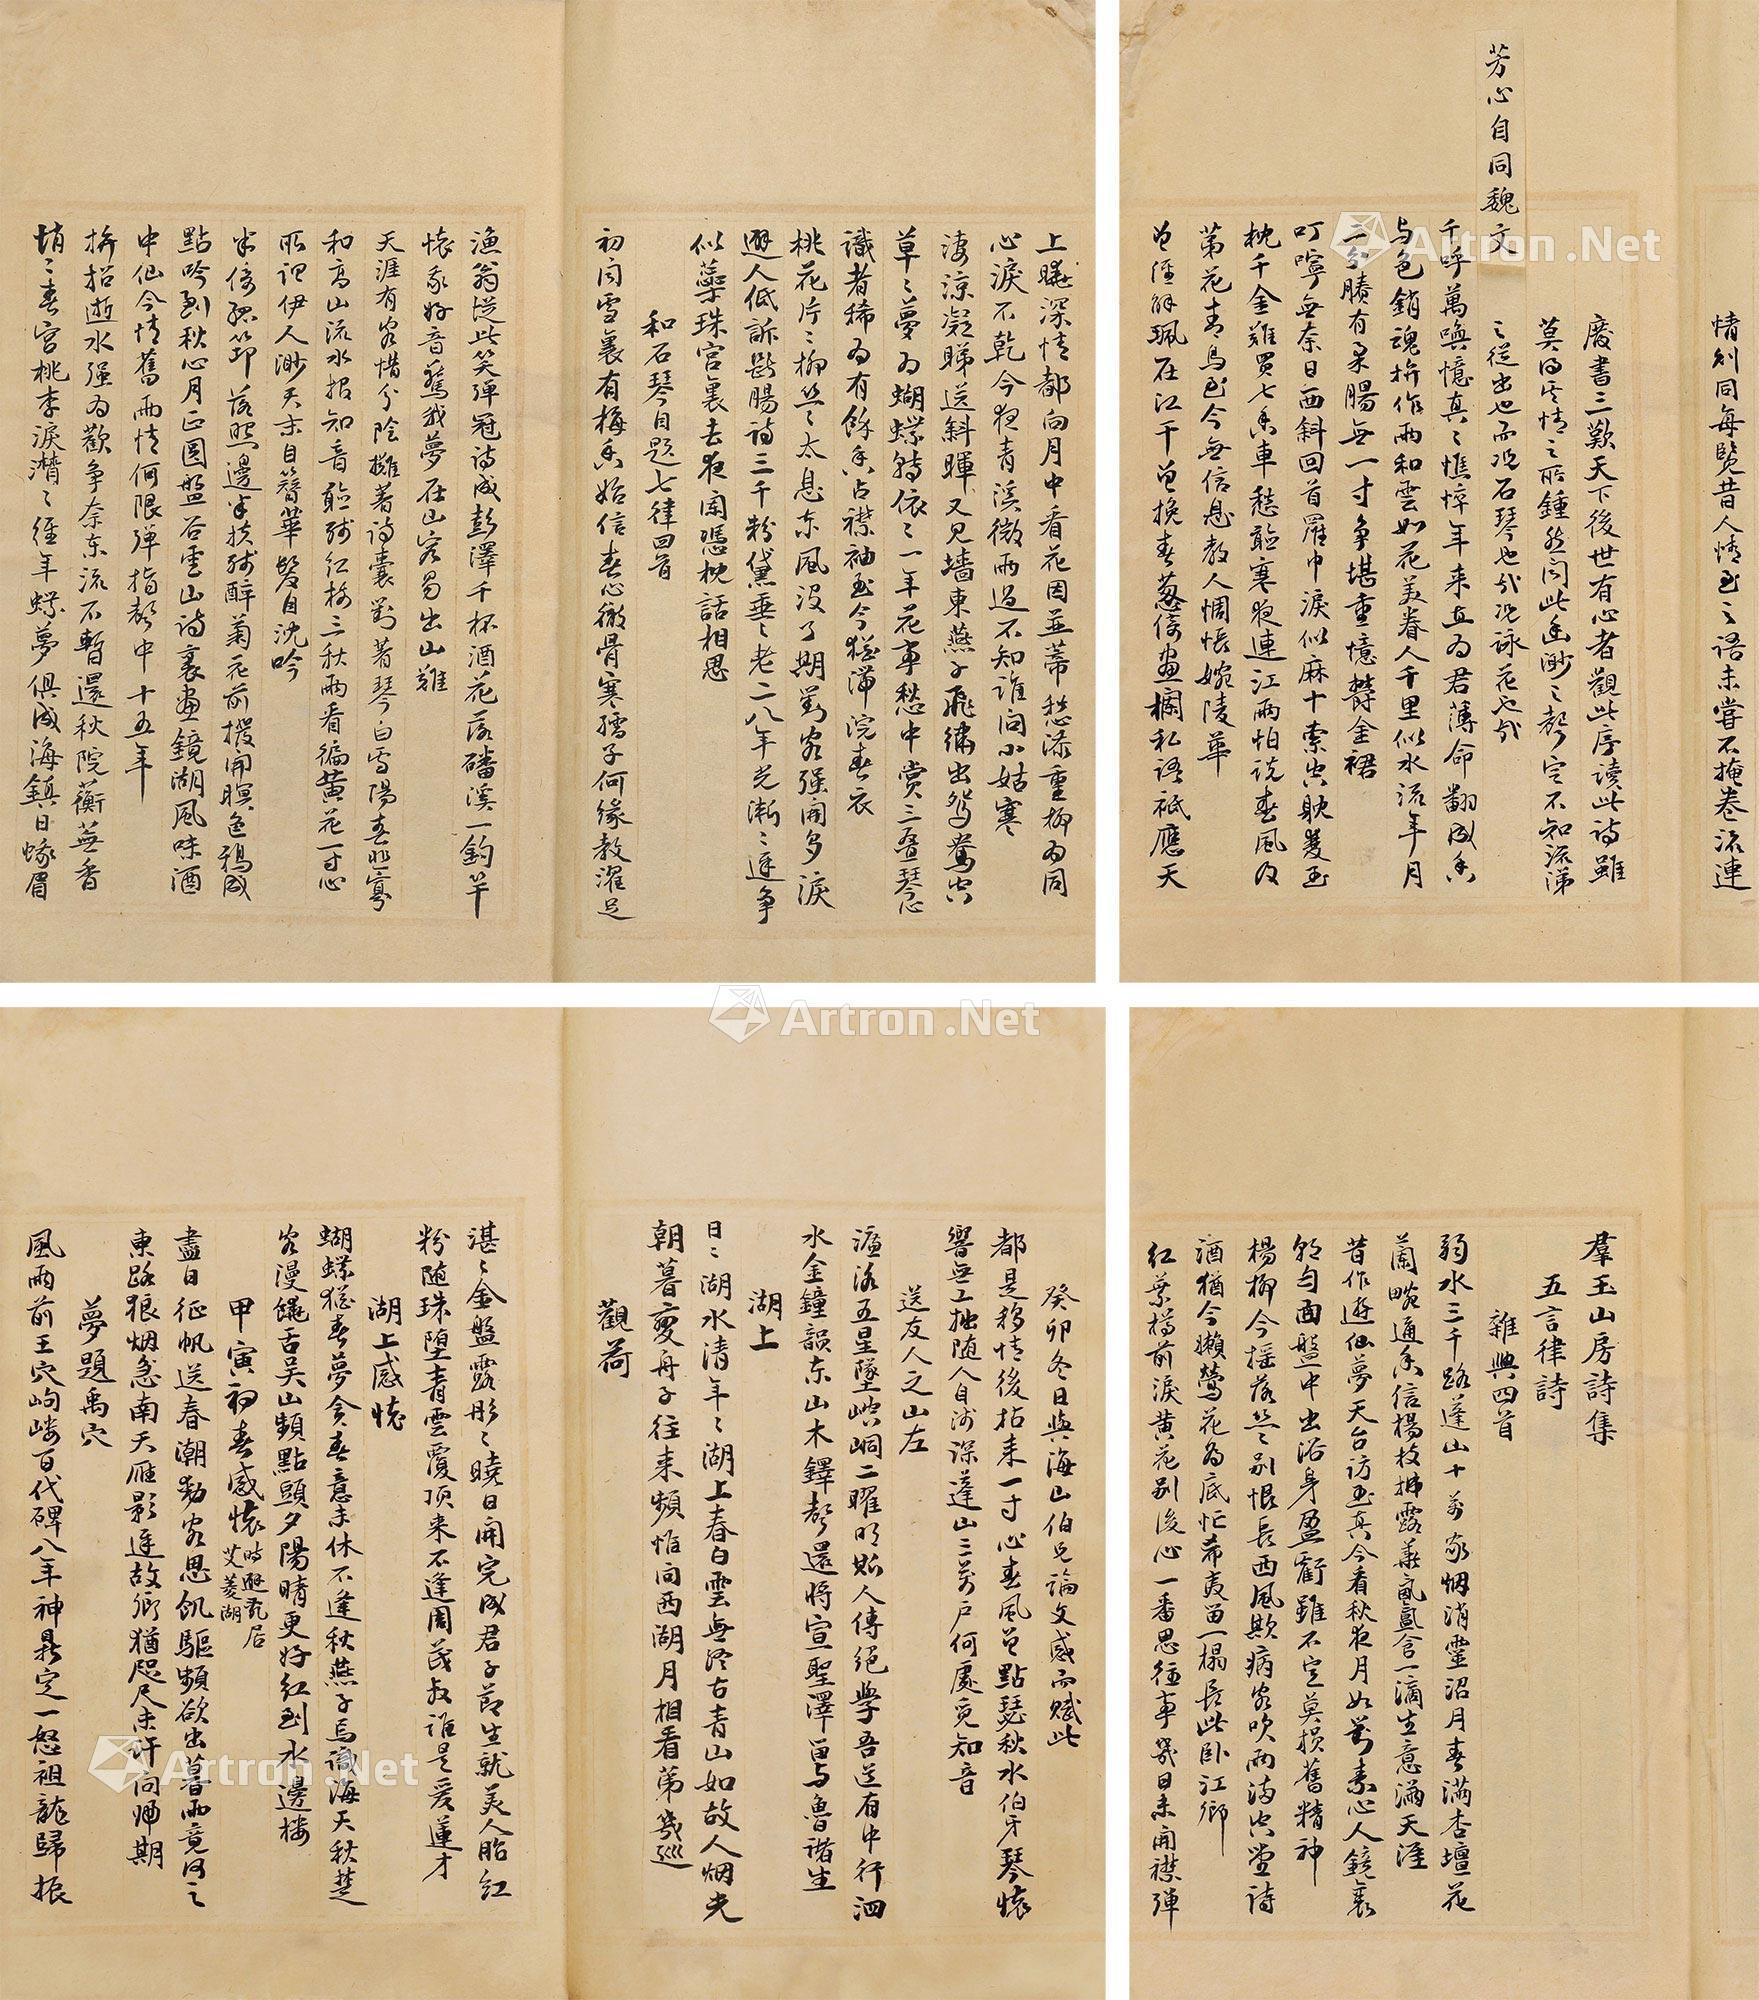 情剣同每覽昔人情至之語未嘗不掩卷流連
廢書三歎天下後世有心者觀此序讀此詩雖
莫如其情之所鍾然问此幽渺之聲定不知流涕
之從出也而况石琴也哉况詠花也哉
芳心自同魏文
千呼萬喚憶真真憔悴年来直為君薄命翻成香
与色銷魂拚作雨和雲如花美眷人千里似水流年月
二分賸有柔腸無一寸争堪重憶鬱金裙
叮嚀無奈日西斜回首羅巾淚似麻十索空耽雙玉
枕千金難買七香車愁聽寒夜連江雨怕説春風及
第花青鳥至今無信息教人惆悵婉陵華
曾經解珮在江干曾挽春葱倚畫欄私語祇應天
上曉深情都向月中看花因並蒂愁添重柳為同
心淚不乾今夜青溪微雨過不知誰问小姑寒
淒涼凝睇送斜暉又見墻東燕子飛繡出鴛鴦空
草草夢為蝴蝶轉依依一年花事愁中賞三叠琴心
識者稀為有餘香占襟袖至今猶滯浣春衣
桃花片片柳絲絲太息東風没了期對客强開多淚
避人低訴斷腸詩三千粉黛垂垂老二八年光漸漸遲争
似蘂珠宮裏去夜闌憑枕話相思
和石琴自題七律四首
初向雪裏有梅香始信春心徹骨寒孺子何緣教濯足
漁翁從此笑弹冠詩成彭澤千杯酒花落磻溪一釣竿
懷我好音驚我夢在山容易出山難
天涯有客惜分陰攤著詩囊對著琴白雪陽春非寡
和高山流水报知音聽殘紅樹三秋雨看徧黄花一寸心
所謂伊人渺天末自簪華髮自沈吟
半倚孤筇落照邊半扶殘醉菊花前撥開暝色鴉成
點吟到秋心月正圓盤谷雲山詩裏畫鏡湖風味酒
中仙今情舊雨情何限弹指聲中十五年
拚招逝水强為歡争奈東流不暫還秋院蘅蕪香
悄悄春宮桃李淚潸潸經年蝶夢俱成海鎮日蛾眉
羣玉山房詩集
五言律詩
雜興四首
弱水三千路蓬山十萬家烟消靈沼月春滿杏壇花
蘭畹通香信楊枝拂露華氤氲含一滴生意滿天涯
昔作遊仙夢天台訪玉真今看秋夜月如對素心人鏡裏
郎勻面盤中出浴身盈虧雖不定莫损舊精神
楊柳今摇落絲絲别恨長西風欺病客吹雨满空堂詩
酒猶今嬾鶯花為底忙希夷留一榻長此卧江鄉
紅葉樽前淚黄花别後心一番思往事幾日未開襟弹
癸卯冬日與海山伯兄論文感而賦此
都是移情後拈来一寸心春風曾點瑟秋水伯牙琴懷
響無工拙随人自淺深蓬山三萬户何處覓知音
送友人之山左
濂洛五星墜崆峒二曜明斯人傳絕學吾道有中行泗
水金鐘韻東山木鐸聲還將宣聖澤留与魯諸生
湖上
日日湖水清年年湖上春白雲無终古青山如故人烟光
朝暮變舟子往来頻惟向西湖月相看第幾巡
觀荷
湛湛金盤露彤彤曉日開完成君子節生就美人胎紅
粉随珠堕青雲覆顶来不逢周茂叔誰是爱蓮才
湖上感懷
蝴蝶猶春夢貪春意未休不逢秋燕子焉識海天秋楚
客漫饒舌吴山頻點頭夕陽晴更好紅到水邊樓
甲寅初春感懷時避亂居艾菱湖
盡日征帆送春潮動客思飢驅頻欲出暮雨竟何之
東路狼烟急南天雁影遲故鄉猶咫尺未许问歸期
夢題禹穴
風雨前王穴岣嶁百代碑八年神鼎定一怒祖龍歸振